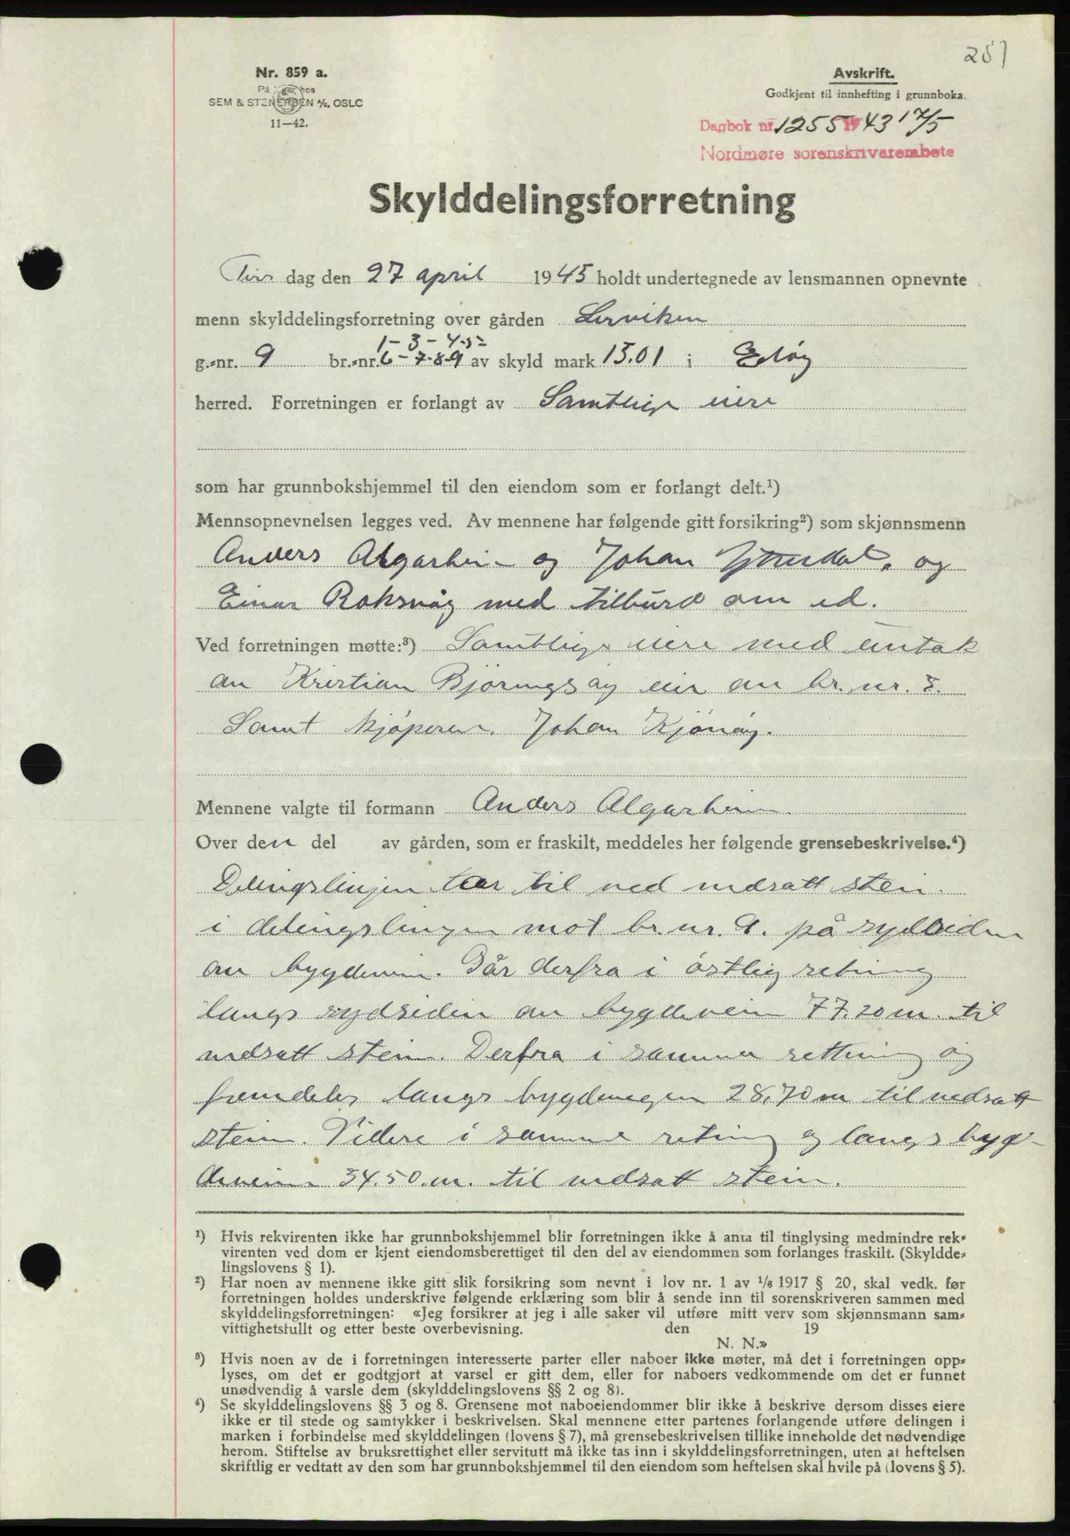 251
Nr. 859 a.
På lager hos
SEM & STENERSEN A/S, OSLO
11—42.
Avskrift.
Godkjent til innhefting i grunnboka.
Dagbok nr. 1255 1943 17/5
Nordmøre sorenskrivarembete
Skylddelingsforretning
Tirs dag den 27 april 1945 holdt undertegnede av lensmannen opnevnte
menn skylddelingsforretning over gården Lerviken
1-3-4-5-
g.-nr. 9 br.-nr. 6-7-8-9 av skyld mark 15.01 i Edøy
herred. Forretningen er forlangt av Samtlige eiere
som har grunnbokshjemmel til den eiendom som er forlangt delt.¹)
Mennsopnevnelsen legges ved. Av mennene har følgende gitt forsikring²) som skjønnsmenn
Anders Algarheim og Johan og
Einar Roksvåg med tilbud om ed.
Ved forretningen møtte:³) Samtlige eiere med untak
av Kristian Bjøringsøy eier av br. nr.
Samt kjøperen. Johan Kjönøy.
Mennene valgte til formann Anders Algarheim.
Over den del av gården, som er fraskilt, meddeles her følgende grensebeskrivelse.⁴)
Delingslinjen tar til ved nedsatt stein.
i delingslinjen mot br. nr. 9. på sydsiden
av bygdevein. Går derfra i östlig retning
langs sydsiden av bygdevein 77.20 m. til
nedsatt stein. Derfra i samme rettning og
fremdeles langs bygdevegen 28,70 m til nedsatt
stein. Videre i samme retning og langs byg-
deveien 34.50. m. til nedsatt stein.
¹) Hvis rekvirenten ikke har grunnbokshjemmel blir forretningen ikke å anta til tinglysing medmindre rek-
virenten ved dom er kjent eiendomsberettiget til den del av eiendommen som forlanges fraskilt. (Skyldde-
lingslovens § 1).
²) Har noen av mennene ikke gitt slik forsikring som nevnt i lov nr. 1 av 1/6 1917 § 20, skal vedk. før
forretningen holdes underskrive følgende erklæring som blir å sende inn til sorenskriveren sammen med
skylddelingsforretningen: «Jeg forsikrer at jeg i alle saker vil utføre mitt verv som skjønnsmann sam-
vittighetsfullt og etter beste overbevisning. den 19
N. N.»
³) Hvis noen av de i forretningen interesserte parter eller naboer ikke møter, må det i forretningen opp-
lyses, om det er godtgjort at varsel er gitt dem, eller for naboers vedkommende om det er funnet
unødvendig å varsle dem (skylddelingslovens §§ 2 og 8).
⁴) Se skylddelingslovens §§ 3 og 8. Grensene mot naboeiendommer blir ikke å beskrive dersom disses eiere
ikke er til stede og samtykker i beskrivelsen. Skal mennene etter partenes forlangende utføre delingen i
marken i forbindelse med skylddelingen (lovens § 7), må grensebeskrivelsen tillike inneholde det nødvendige
herom. Stiftelse av bruksrettighet eller servitutt må ikke tas inn i skylddelingsforretningen, uten at heftelsen
skriftlig er vedtatt av den som har grunnbokshjemmel til den eiendom som heftelsen skal hvile på (lovens § 5).